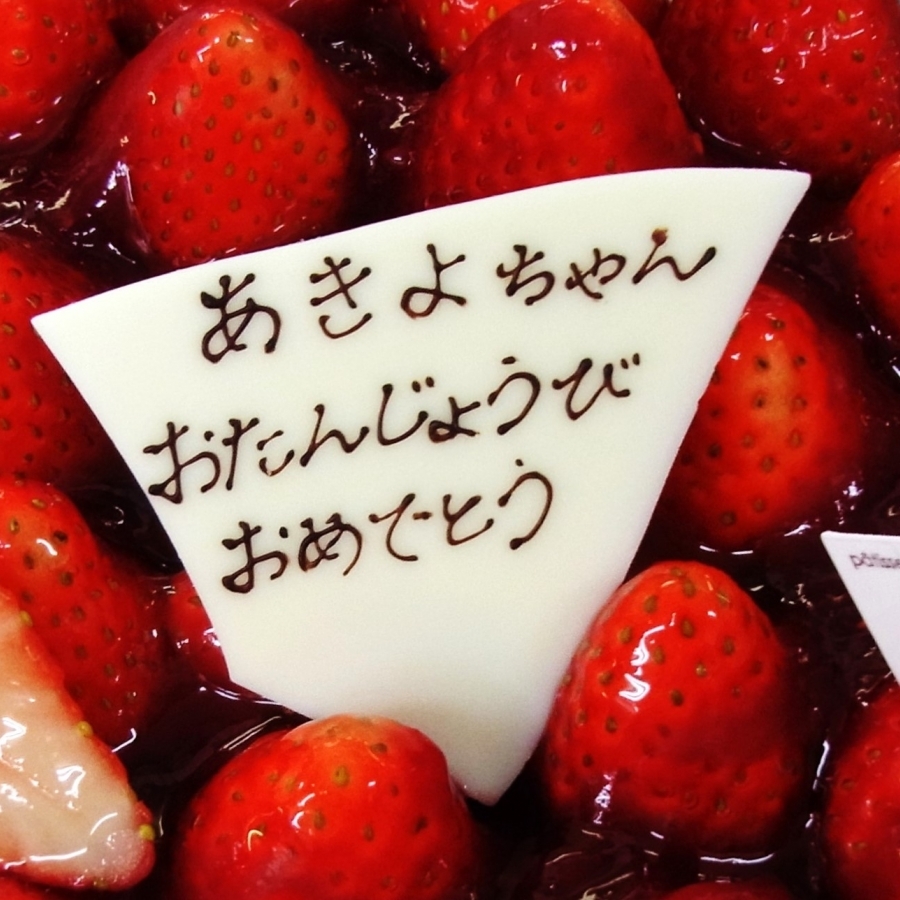 あきよちゃん
おたんじょうび
おめでとう